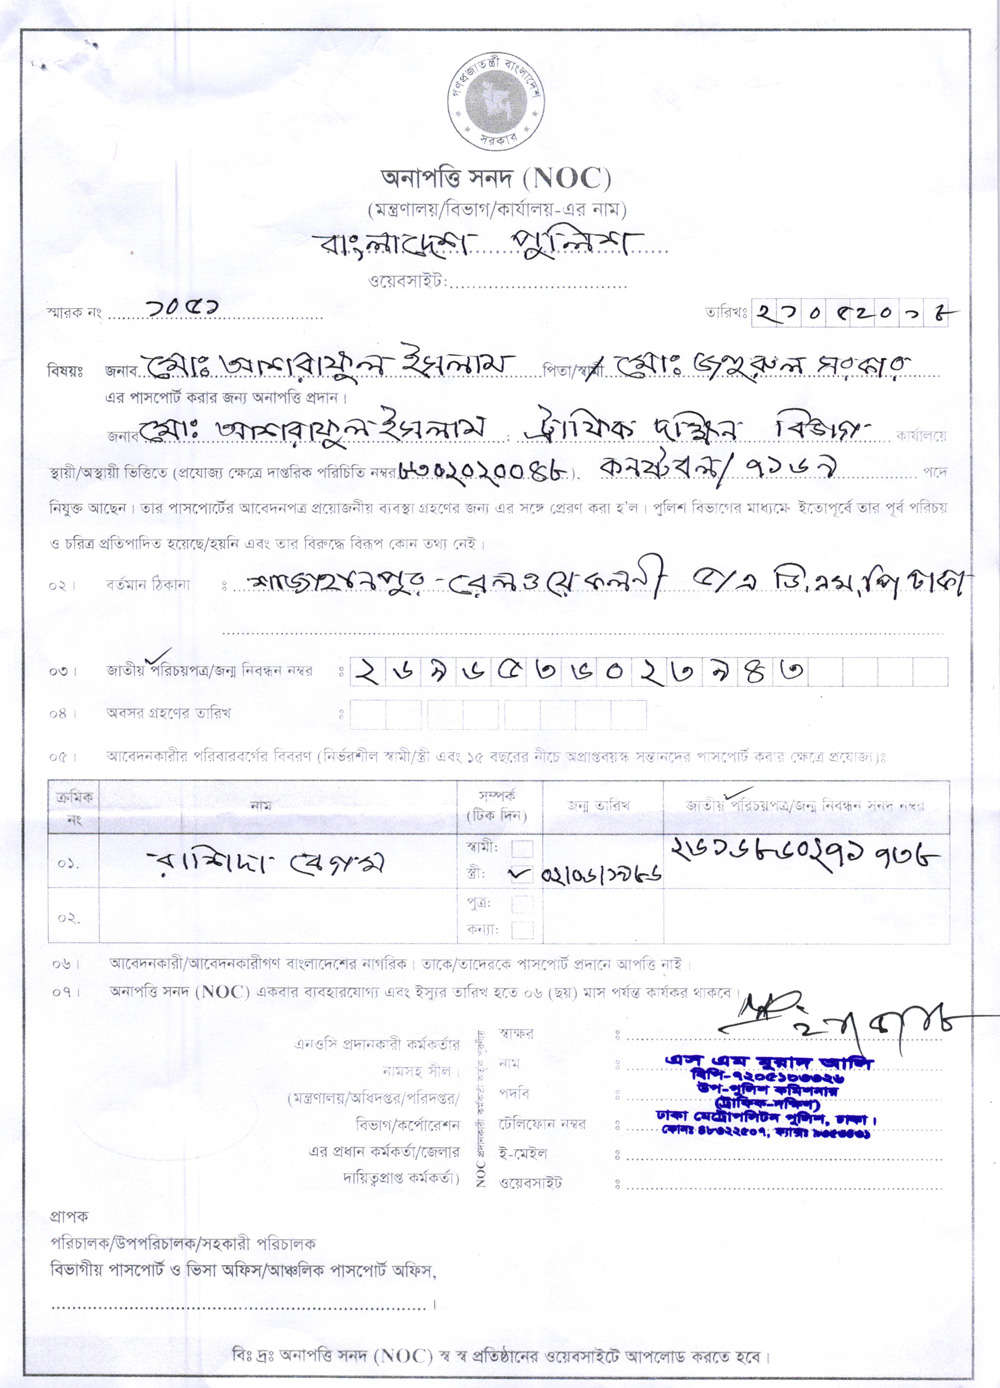 গণপ্রজাতন্ত্রী বাংলাদেশ
সরকার
অনাপত্তি সনদ (NOC)
(মন্ত্রণালয়/বিভাগ/কার্যালয়-এর নাম)
বাংলাদেশ পুলিশ
ওয়েবসাইট:
স্মারক নং ১০৫১ তারিখঃ ২১০৫২০১৮
বিষয়ঃ জনাব মোঃ আশরাফুল ইসলাম পিতা/স্বামী মোঃ জহুরুল সরকার
এর পাসপোর্ট করার জন্য অনাপত্তি প্রদান।
জনাব মোঃ আশরাফুল ইসলাম ট্রাফিক দক্ষিন বিভাগ কার্যালয়ে
স্থায়ী/অস্থায়ী ভিত্তিতে (প্রযোজ্য ক্ষেত্রে দাপ্তরিক পরিচিতি নম্বর ৮৩০২০২০০৪৮). কনষ্টবল/৭১৬৯ পদে
নিযুক্ত আছেন। তার পাসপোর্টের আবেদনপত্র প্রয়োজনীয় ব্যবস্থা গ্রহণের জন্য এর সঙ্গে প্রেরণ করা হ'ল। পুলিশ বিভাগের মাধ্যমে ইতোপূর্বে তার পূর্ব পরিচয়
ও চরিত্র প্রতিপাদিত হয়েছে/হয়নি এবং তার বিরুদ্ধে বিরূপ কোন তথ্য নেই।
০২। বর্তমান ঠিকানা : শাজাহানপুর রেলওয়ে কলনী ৫/এ ডি,এম,পি ঢাকা
০৩। জাতীয় পরিচয়পত্র/জন্ম নিবন্ধন নম্বর : ২৬৯৬৫৩৬০২৩৯৪৩
০৪। অবসর গ্রহণের তারিখ :
০৫। আবেদনকারীর পরিবারবর্গের বিবরণ (নির্ভরশীল স্বামী/স্ত্রী এবং ১৫ বছরের নীচে অপ্রাপ্তবয়স্ক সন্তানদের পাসপোর্ট করার ক্ষেত্রে প্রযোজ্য):
ক্রমিক নং নাম সম্পর্ক (টিক দিন) জন্ম তারিখ জাতীয় পরিচয়পত্র/জন্ম নিবন্ধন সনদ নম্বর
০১. রাশিদা বেগম স্বামী: স্ত্রী: ০২/০৬/১৯৮৬ ২৬১৬৮৬০২৭১৭৩৮
০২. পুত্র: কন্যা:
০৬। আবেদনকারী/আবেদনকারীগণ বাংলাদেশের নাগরিক। তাকে/তাদেরকে পাসপোর্ট প্রদানে আপত্তি নাই।
০৭। অনাপত্তি সনদ (NOC) একবার ব্যবহারযোগ্য এবং ইস্যুর তারিখ হতে ০৬ (ছয়) মাস পর্যন্ত কার্যকর থাকবে।
এনওসি প্রদানকারী কর্মকর্তার
নামসহ সীল।
(মন্ত্রণালয়/অধিদপ্তর/পরিদপ্তর/
বিভাগ/কর্পোরেশন
এর প্রধান কর্মকর্তা/জেলার
দায়িত্বপ্রাপ্ত কর্মকর্তা)
NOC প্রদানকারী কর্মকর্তা কর্তৃক পূরণীয়
স্বাক্ষর :
নাম : এস এম মুরাদ আলি
বিপি-৭২০৫১০৩৩২৬
পদবি : উপ-পুলিশ কমিশনার
(ট্রাফিক-দক্ষিণ)
টেলিফোন নম্বর : ঢাকা মেট্রোপলিটন পুলিশ, ঢাকা।
ফোনঃ ৪৮৩২২৫০৭, ফ্যাক্সঃ
ই-মেইল :
ওয়েবসাইট :
প্রাপক
পরিচালক/উপপরিচালক/সহকারী পরিচালক
বিভাগীয় পাসপোর্ট ও ভিসা অফিস/আঞ্চলিক পাসপোর্ট অফিস,
।
বিঃ দ্রঃ অনাপত্তি সনদ (NOC) স্ব স্ব প্রতিষ্ঠানের ওয়েবসাইটে আপলোড করতে হবে।